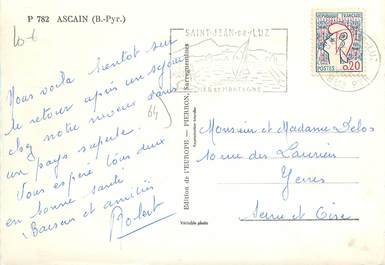 P 782 ASCAIN (B.-Pyr.)
SAINT-JEAN-DE-LUZ
MER ET MONTAGNE
REPUBLIQUE FRANÇAISE
POSTES 0,20
Nous voilà bientôt sur
le retour après un séjour
chez notre neveu dans
un pays superbe.
Vous espère tous deux
en bonne santé
Baisers et amitiés
Robert
64
Edition de l'EUROPE — PIERRON, Sarreguemines
Véritable photo
Monsieur et Madame Delos
rue des Lauriers
Yerres
Seine et Oise